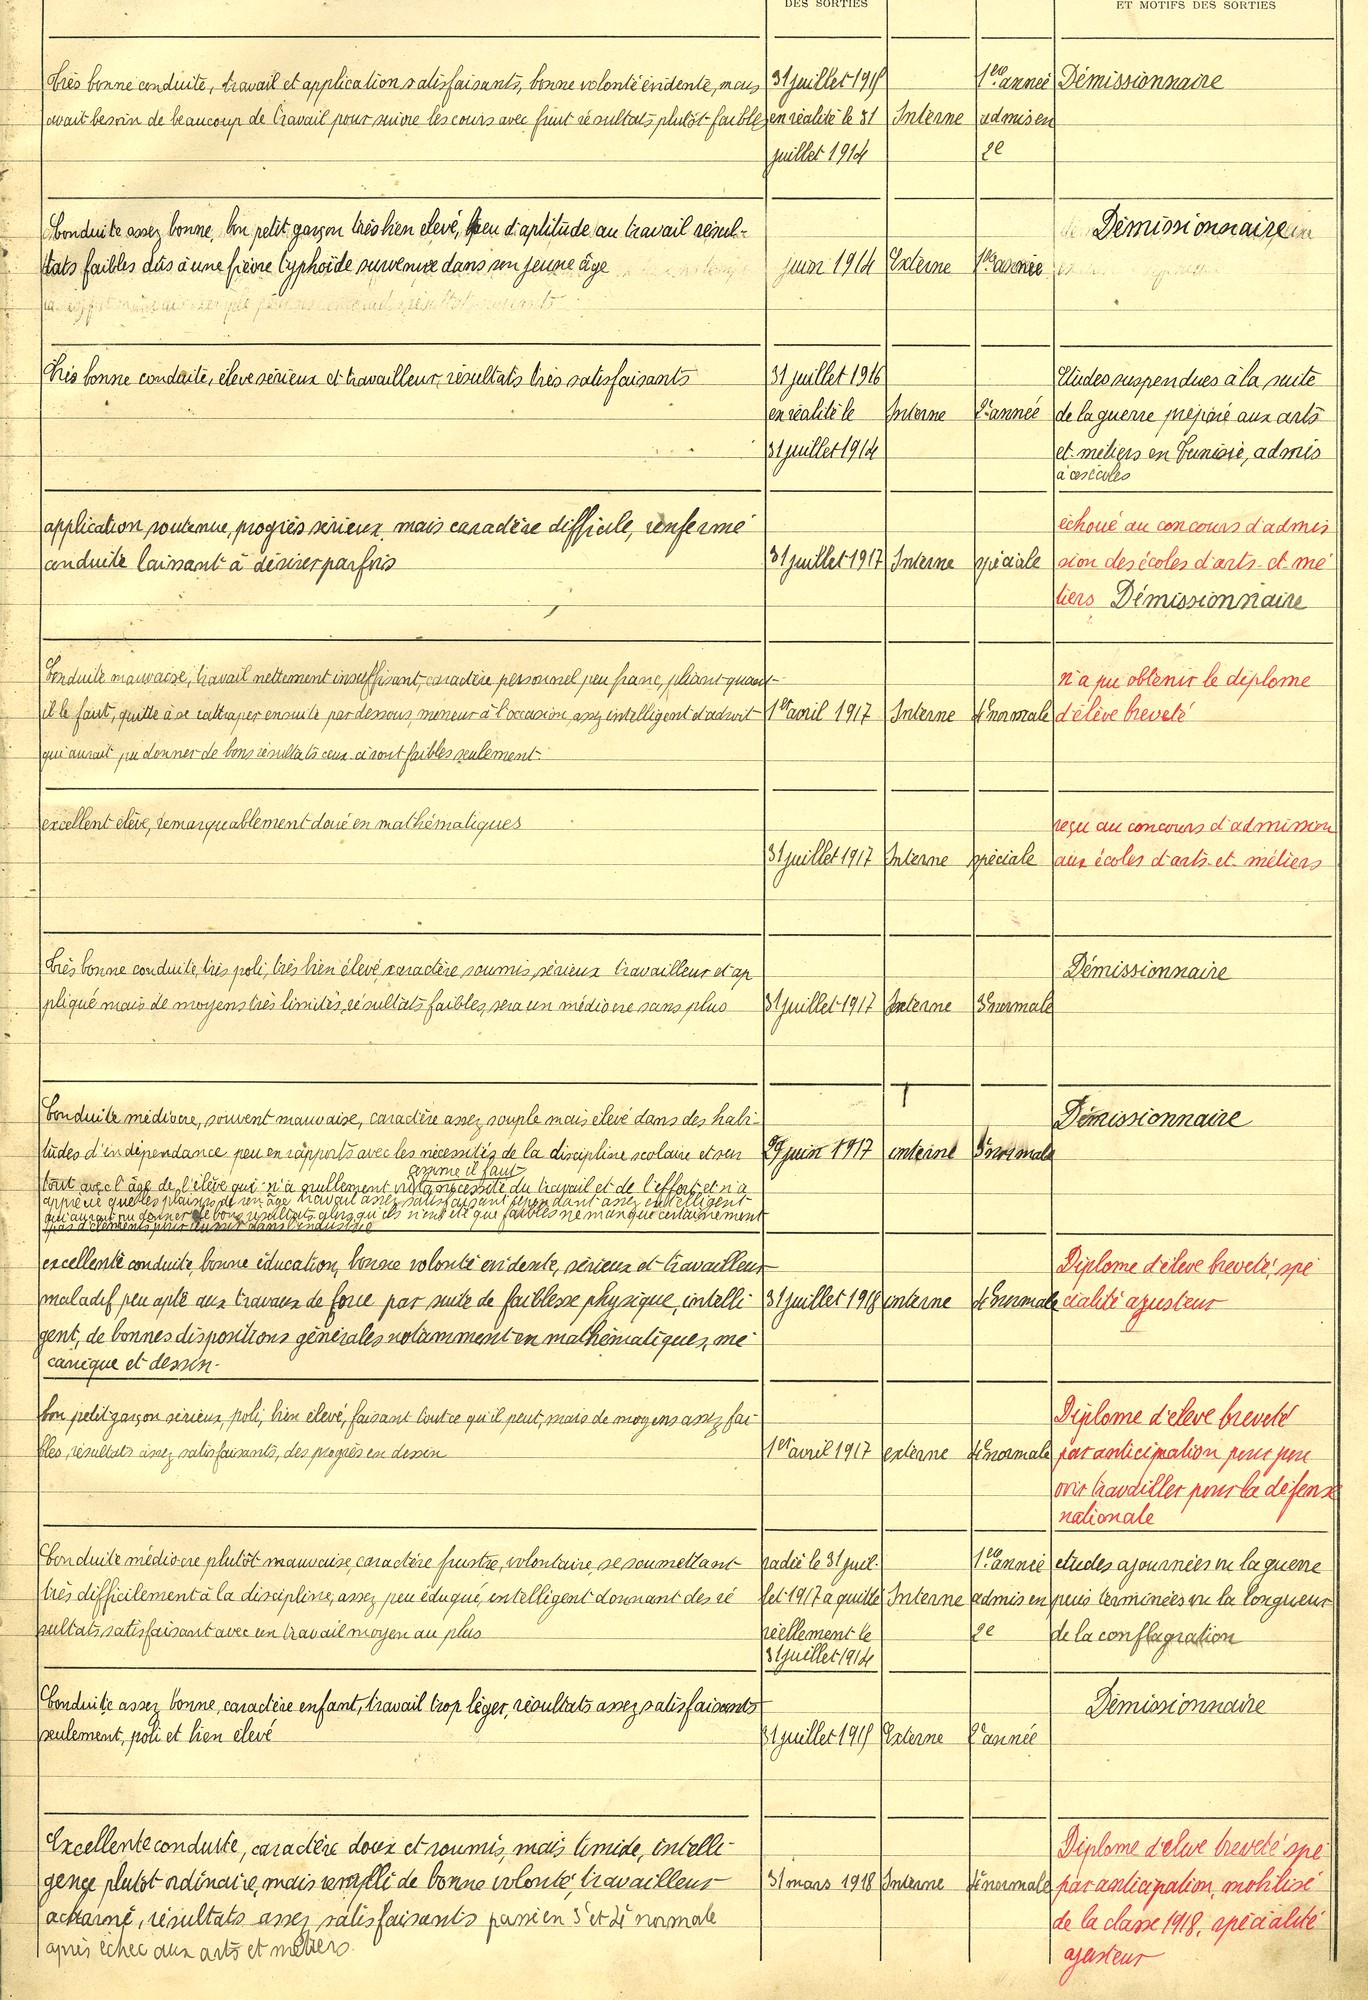 DES SORTIES
ET MOTIFS DES SORTIES
Très bonne conduite, travail et application satisfaisants, bonne volonté évidente, mais
avait besoin de beaucoup de travail pour suivre les cours avec fruit résultats plutôt faibles
31 juillet 1915
en réalité le 31
juillet 1914
Interne
1ère année
admis en
2e
Démissionnaire
Conduite assez bonne, bon petit garçon très bien élevé, peu d'aptitude au travail résul-
tats faibles dûs à une fièvre typhoïde survenue dans son jeune âge
juin 1914
Externe
1ère année
Démissionnaire
Très bonne conduite, élève sérieux et travailleur, résultats très satisfaisants
31 juillet 1916
en réalité le
31 juillet 1914
Interne
2e année
Etudes suspendues à la suite
de la guerre préparé aux arts
et métiers en Tunisie, admis
à ces écoles
application soutenue, progrès sérieux, mais caractère difficile, renfermé
conduite laissant à désirer parfois
31 juillet 1917
Interne
spéciale
échoué au concours d'admis
sion des écoles d'arts et mé
tiers Démissionnaire
Conduite mauvaise, travail nettement insuffisant, caractère personnel peu franc, pliant quand
il le faut, quitte à se rattraper ensuite par dessous, meneur à l'occasion, assez intelligent et adroit
qui aurait pu donner de bons résultats ceux-ci sont faibles seulement.
1er avril 1917
Interne
4e normale
n'a pu obtenir le diplome
d'élève breveté
excellent élève, remarquablement doué en mathématiques
31 juillet 1917
Interne
spéciale
reçu au concours d'admission
aux écoles d'arts et métiers
Très bonne conduite, très poli, très bien élevé, caractère soumis, sérieux travailleur et ap
pliqué mais de moyens très limités, résultats faibles, sera un médiocre sans plus
31 juillet 1917
Externe
3e normale
Démissionnaire
Conduite médiocre, souvent mauvaise, caractère assez souple mais élevé dans des habi-
tudes d'indépendance peu en rapports avec les nécessités de la discipline scolaire et en
comme il faut
tout avec l'âge de l'élève qui n'a nullement vu la nécessité du travail et de l'effort et n'a
apprécié que les plaisirs de son âge travail assez cependant assez intelligent
qui aurait pu donner de bons résultats alors qu'ils n'ont été que faibles ne manque certainement
pas d'éléments pour réussir dans l'industrie
29 juin 1917
interne
3e normale
Démissionnaire
excellente conduite, bonne éducation, bonne volonté evidente, sérieux et travailleur
maladif peu apte aux travaux de force par suite de faiblesse physique, intelli
gent, de bonnes dispositions générales notamment en mathématiques, mé
canique et dessin.
31 juillet 1918
interne
4e normale
Diplome d'élève breveté, spé
cialité ajusteur
bon petit garçon sérieux, poli, bien élevé, faisant tout ce qu'il peut, mais de moyens assez fai-
bles, résultats assez satisfaisants, des progrès en dessin
1er avril 1917
externe
4e normale
Diplome d'élève breveté
par anticipation pour pou
voir travailler pour la défense
nationale
Conduite médiocre plutôt mauvaise, caractère frustre, volontaire, se soumettant
très difficilement à la discipline, assez peu éduqué, intelligent donnant des ré
sultats satisfaisant avec un travail moyen au plus
radié le 31 juil-
let 1917 a quitté
réellement le
31 juillet 1914
Interne
1ère année
admis en
2e
etudes ajournées vu la guerre
puis terminées vu la longueur
de la conflagration
Conduite assez bonne, caractère enfant, travail trop léger, résultats assez satisfaisants
seulement, poli et bien élevé
31 juillet 1915
Externe
2e année
Démissionnaire
Excellente conduite, caractère doux et soumis, mais timide, intelli-
gence plutôt ordinaire, mais rempli de bonne volonté, travailleur
acharné, résultats assez satisfaisants passé en 3e et 4e normale
après échec aux arts et métiers.
31 mars 1918
Interne
4e normale
Diplome d'élève breveté spé
par anticipation, mobilisé
de la classe 1918, spécialité
ajusteur